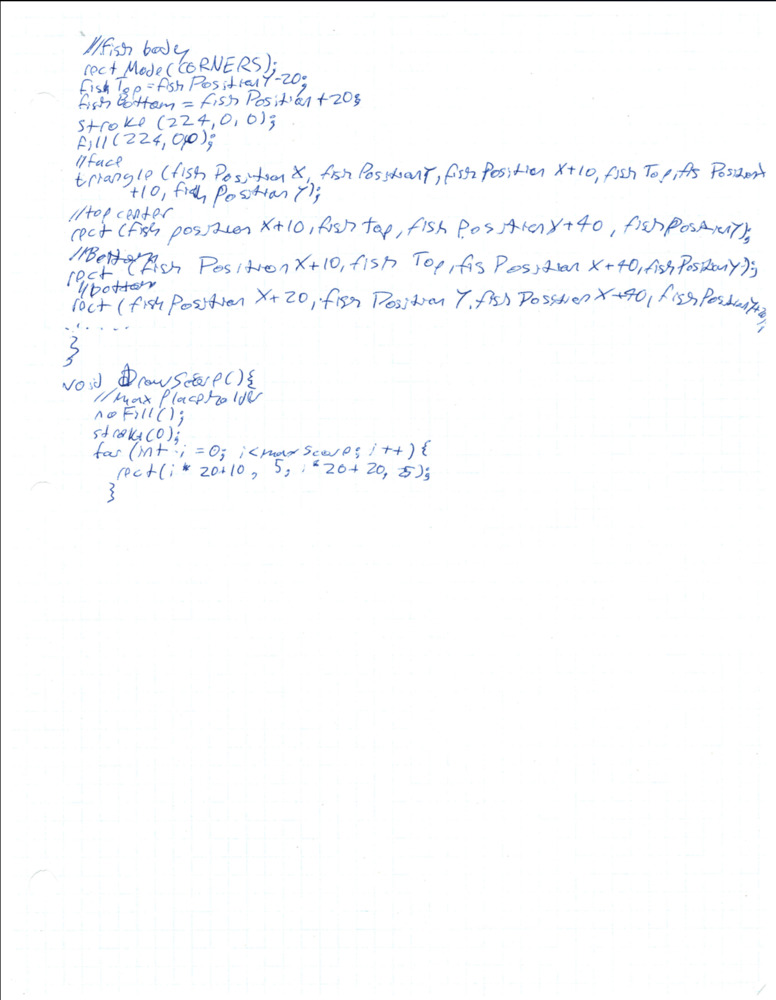 //fish body
rect Mode(CORNERS);
fish Top = fish PositionY-20;
fish Bottom = fish Position + 20;
stroke (224,0,0);
fill(224,0,0);
//face
triangle (fish Position X, fish PositionY, fish Position X+10, fish Top, fis Position
+10, fish Position Y);
//top center
rect (fish position X+10, fish top, fish Position X+40, fish PositionY);
//Bottom
rect (fish Position X+10, fish Top, fis Position X+40, fish PositionY);
//bottom
rect (fish Position X+20, fish Position Y, fish Position X+40, fish PositionY+20);
......
}
}
void DrawScore(){
//max placeholder
noFill();
stroke(0);
for (int i = 0; i<max score; i++){
rect(i * 20+10, 5, i*20+20, 5);
}